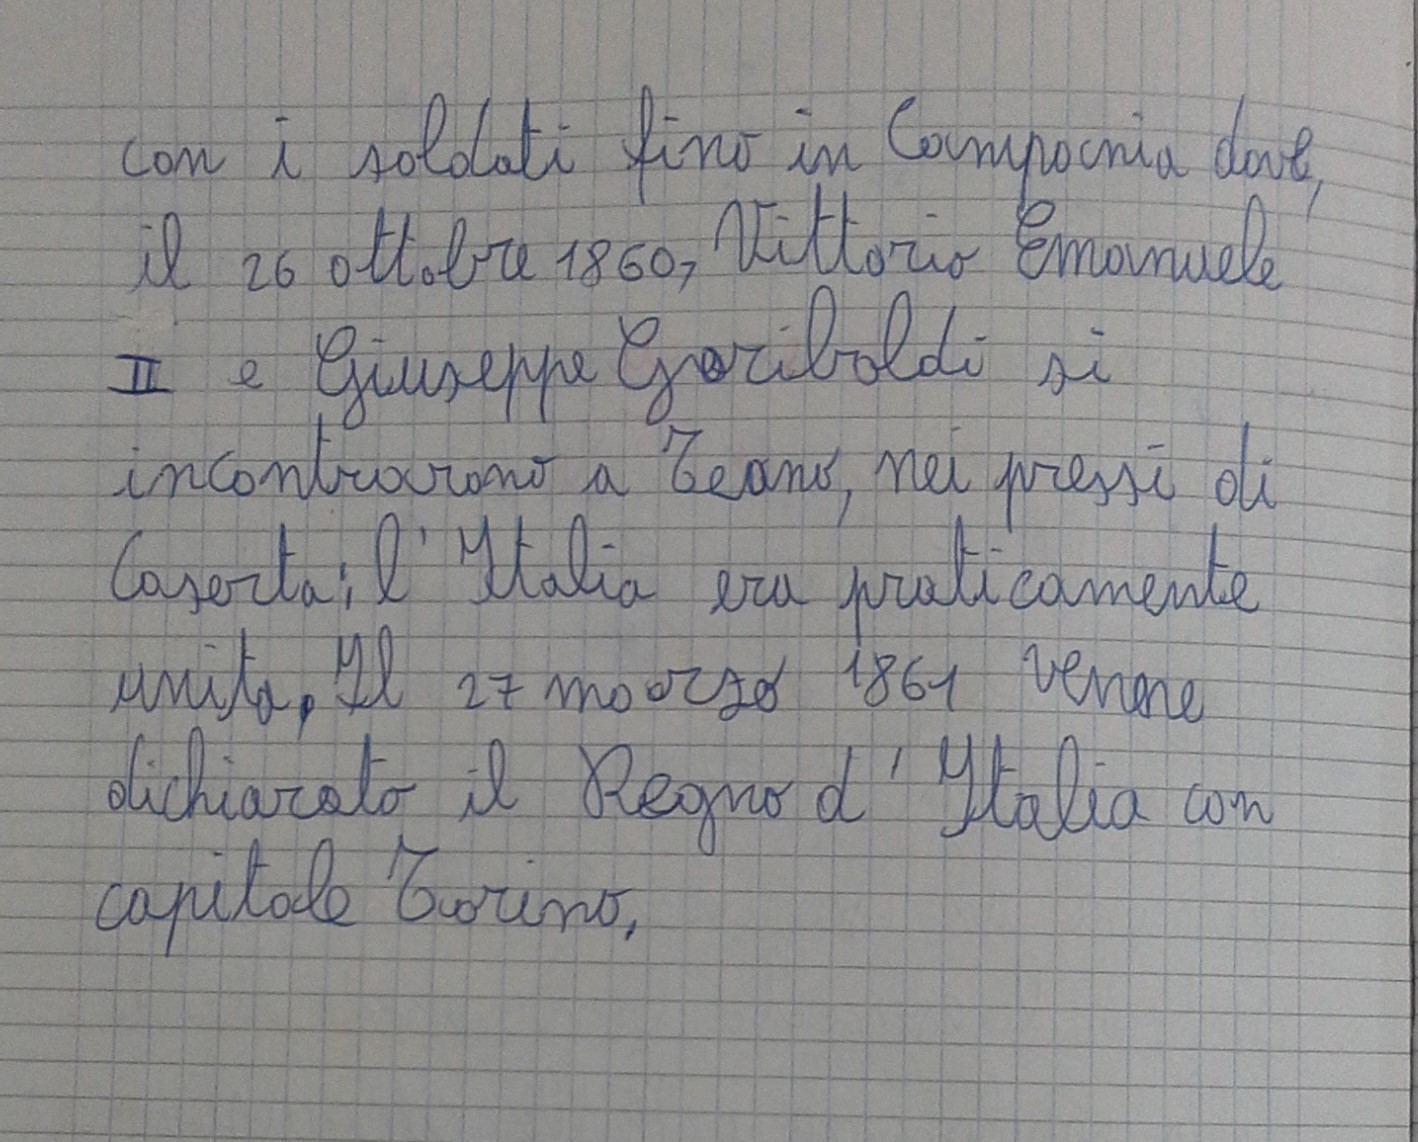 con i soldati fino in Campania dove,
il 26 ottobre 1860, Vittorio Emanuele
II e Giuseppe Garibaldi si
incontrarono a Teano, nei pressi di
Caserta; l'Italia era praticamente
unita. Il 27 marzo 1861 venne
dichiarato il Regno d'Italia con
capitale Torino.